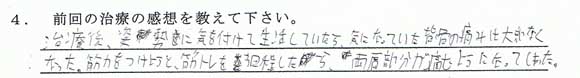 4. 前回の治療の感想を教えて下さい。
治療後、姿勢に気を付けて生活していたら、気になっていた背骨の痛みは大分なく
なった。筋力をつけようと、筋トレを程したら、両肩部分が痛むようになってしまった。